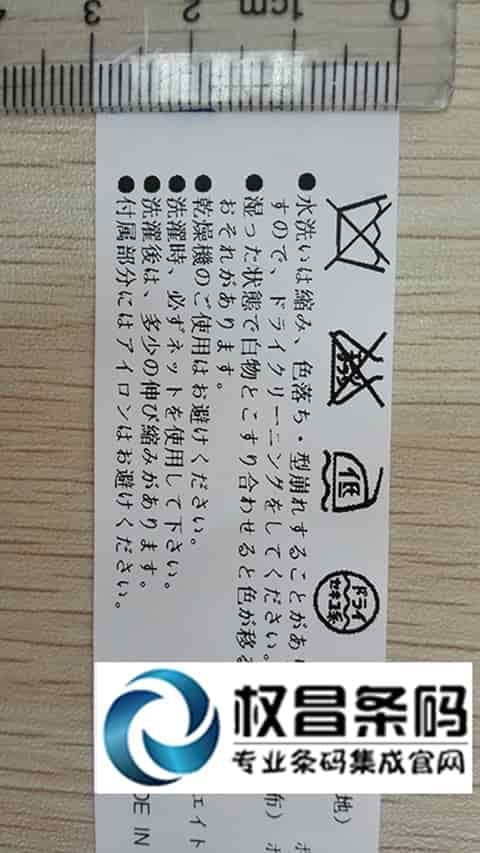 0 1cm 2 3 4
低
ドライ
セキユ系
●水洗いは縮み、色落ち・型崩れすることがあり
すので、ドライクリーニングをしてください。
●湿った状態で白物とこすり合わせると色が移る
おそれがあります。
●乾燥機のご使用はお避けください。
●洗濯時、必ずネットを使用して下さい。
●洗濯後は、多少の伸び縮みがあります。
●付属部分にはアイロンはお避けください。
权昌条码
专业条码集成官网
地)
布)
エイト
DE IN